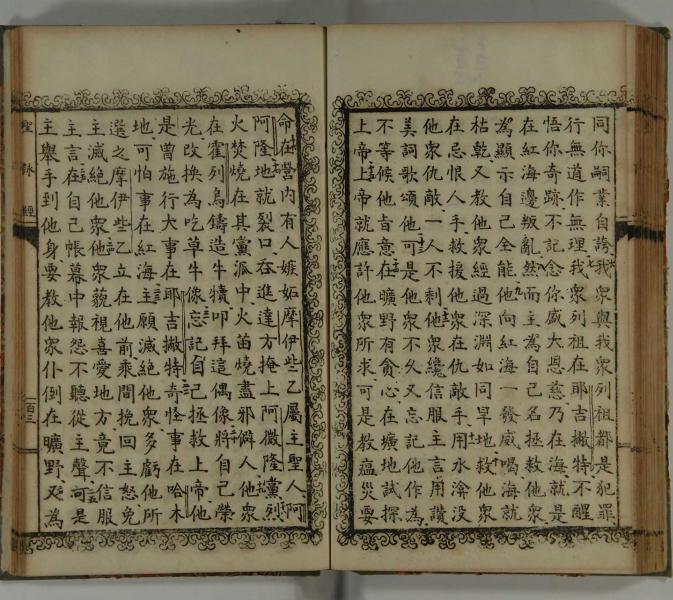 同你嗣業自誇我衆與我衆列祖都是犯罪
行無道作無理我衆列祖在耶吉撇特不醒
悟你奇跡不記念你盛大恩慈乃在海就是
在紅海邊叛亂然而主為自己名拯救他衆
為顯示自己全能他向紅海一發威喝海就
枯乾又教他衆經過深淵如同旱地救他衆
在忌恨人手救援他衆在仇敵手用水渰没
他衆仇敵一人不剩他衆纔信服主言用讚
美詞歌頌他可是他衆不久又忘記他作為
不等候他旨意在曠野有貪心在曠地試探
上帝上帝就應許他衆所求可是教瘟災要
命在營內有人嫉妬摩伊些乙屬主聖人阿
阿隆地就裂口吞進達方掩上阿微隆黨烈
火焚燒在其黨派中火苗燒盡邪僻人他衆
在霍列烏鑄造牛犢叩拜這偶像將自己榮
光改換為吃草牛像忘記自己拯救上帝他
是曾施行大事在耶吉撇特奇怪事在哈木
地可怕事在紅海主願滅絕他衆多虧他所
選之摩伊些乙立在他前乘間挽回主怒免
主滅絕他衆他衆藐視喜愛地方竟不信服
主言在自己帳幕中報怨不聽從主聲可是
主舉手到他身要教他衆仆倒在曠野又為
聖詠經
一百三